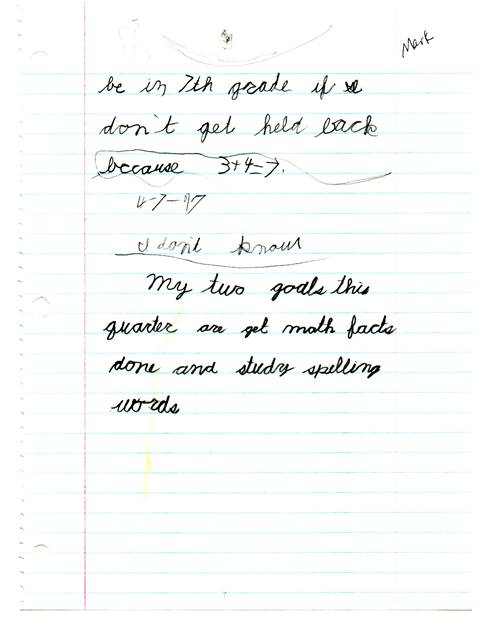 Mark
be in 7th grade if
don't get held back
because 3+4=7.
4-7-97
I don't know
My two goals this
quarter are get math facts
done and study spelling
words